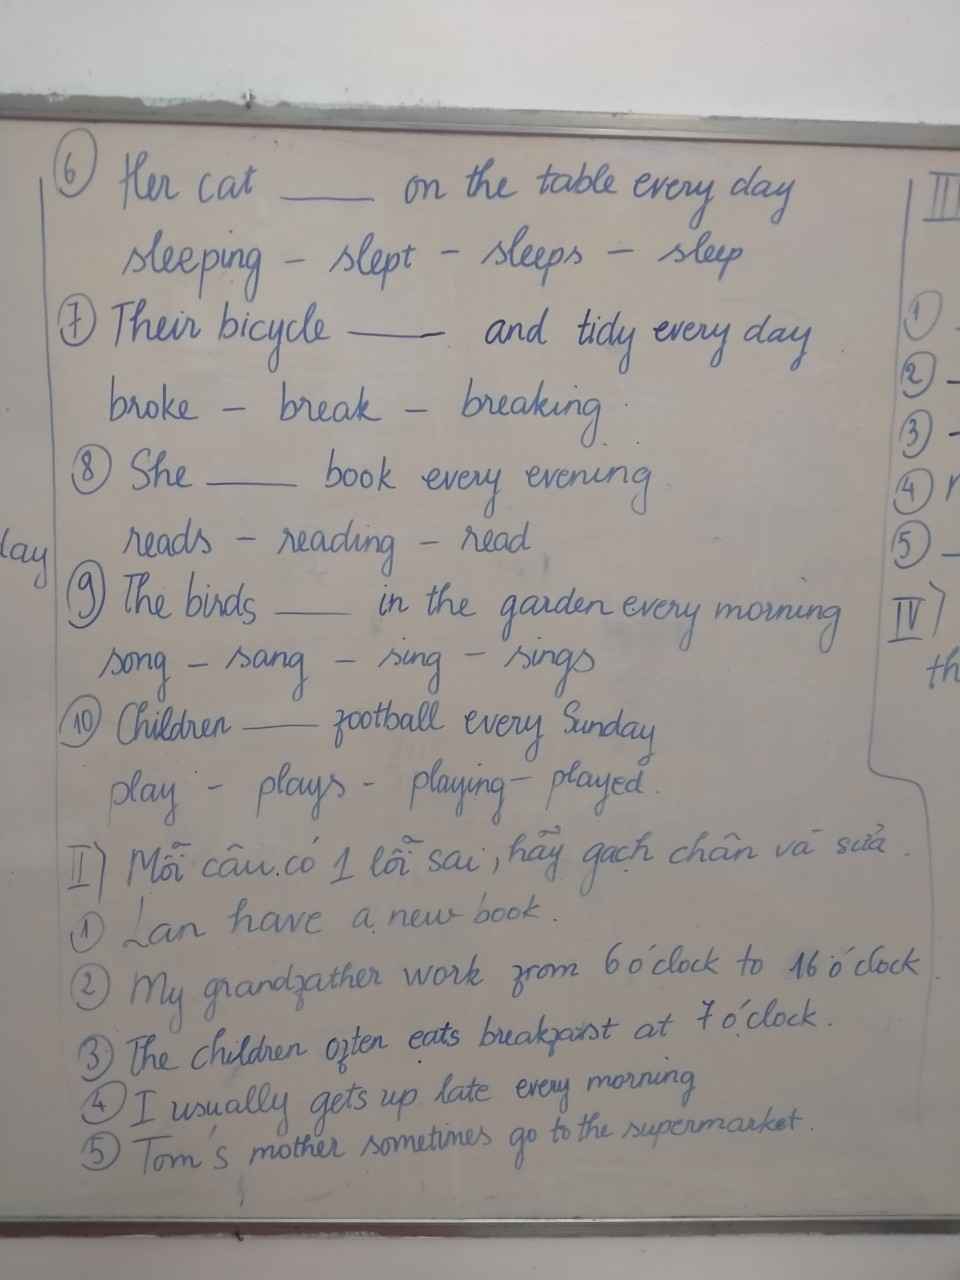 6 Her cat ____ on the table every day
sleeping - slept - sleeps - sleep
7 Their bicycle ____ and tidy every day
broke - break - breaking
8 She ____ book every evening
reads - reading - read
lay
9 The birds ____ in the garden every morning
song - sang - sing - sings
10 Children ____ football every Sunday
play - plays - playing - played.
II) Mỗi câu có 1 lỗi sai, hãy gạch chân và sửa.
1 Lan have a new book.
2 My grandfather work from 6 o'clock to 16 o'clock.
3 The children often eats breakfast at 7 o'clock.
4 I usually gets up late every morning
5 Tom's mother sometimes go to the supermarket.
III
1
2
3
4
5
IV)
th